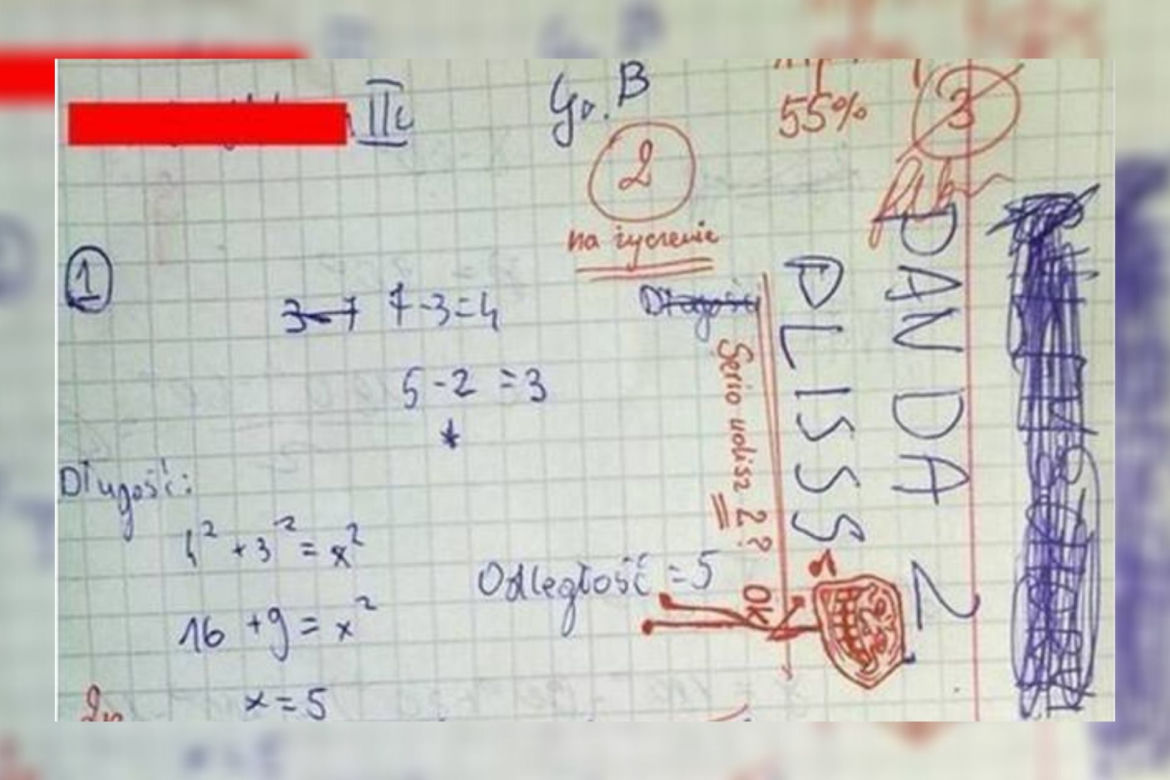 IIc
Gr. B
55%
3
2
na życzenie
1
3-7 7-3=4
Długość
5-2 =3
Długość:
4² + 3² = x²
16 + 9 = x²
x = 5
Odległość = 5
Serio wolisz 2? OK
PLISSS
PANDA 2